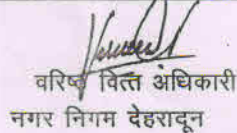 वरिष्ठ वित्त अधिकारी
नगर निगम देहरादून